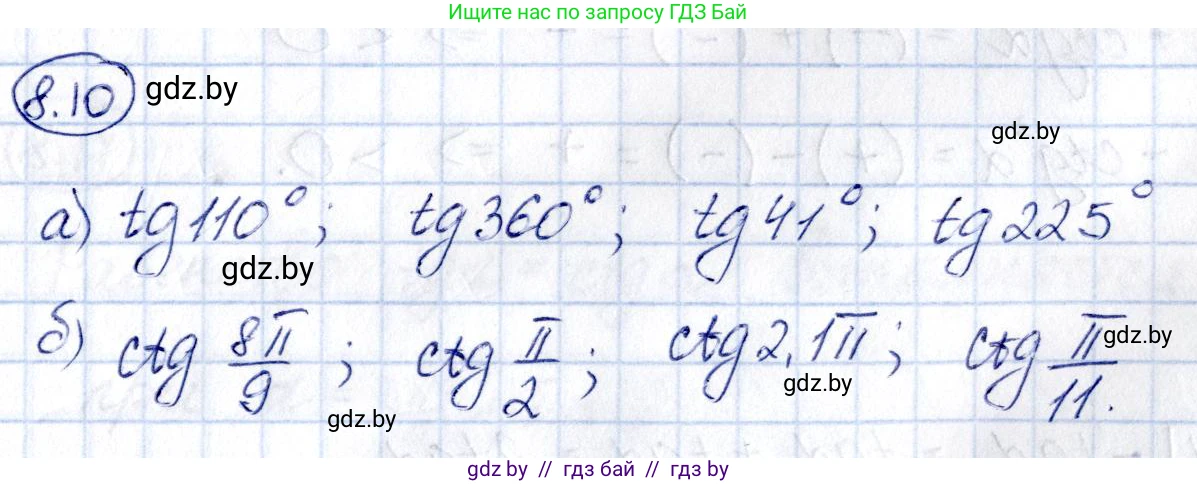 Ищите нас по запросу ГДЗ Бай
8.10 gdz.by
gdz.by
а) tg 110°; tg 360°; tg 41°; tg 225°
gdz.by
б) ctg 8π/9; ctg π/2; ctg 2,1π; ctg π/11.
gdz.by
gdz.by
gdz.by
gdz.by // гдз бай // гдз by